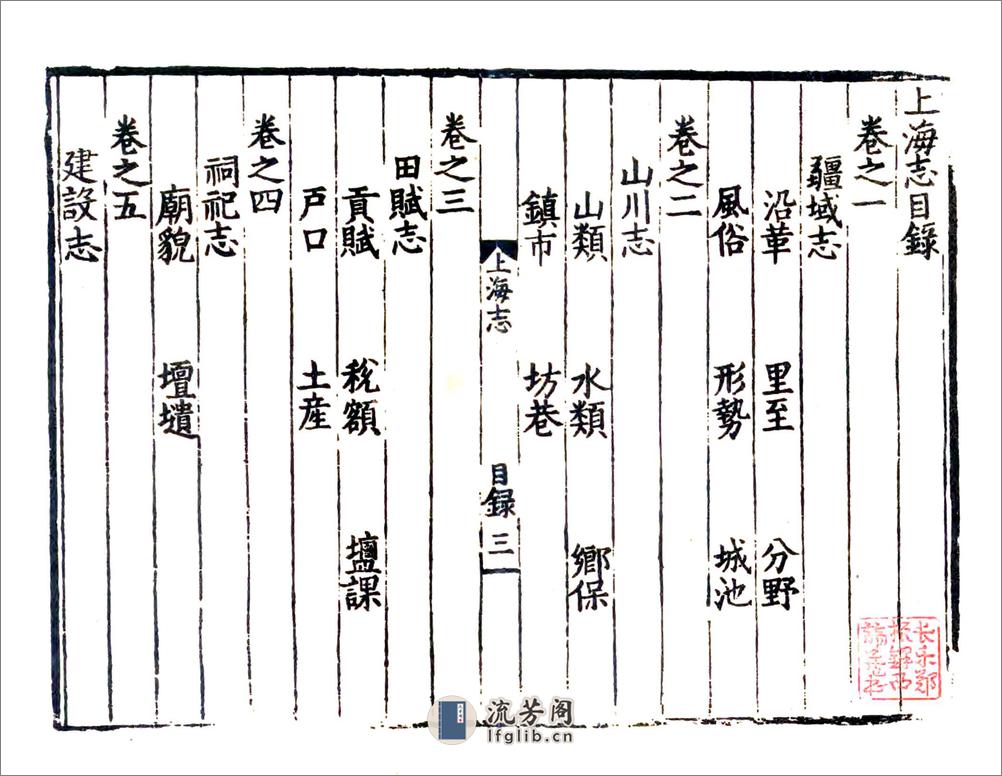 上海志目錄
卷之一
疆域志
沿革 里至 分野
風俗 形勢 城池
卷之二
山川志
山類 水類 鄉保
鎮市 坊巷
上海志 目録 三
卷之三
田賦志
貢賦 稅額 塩課
戶口 土産
卷之四
祠祀志
廟貌 壇壝
卷之五
建設志
流芳阁
lfglib.cn